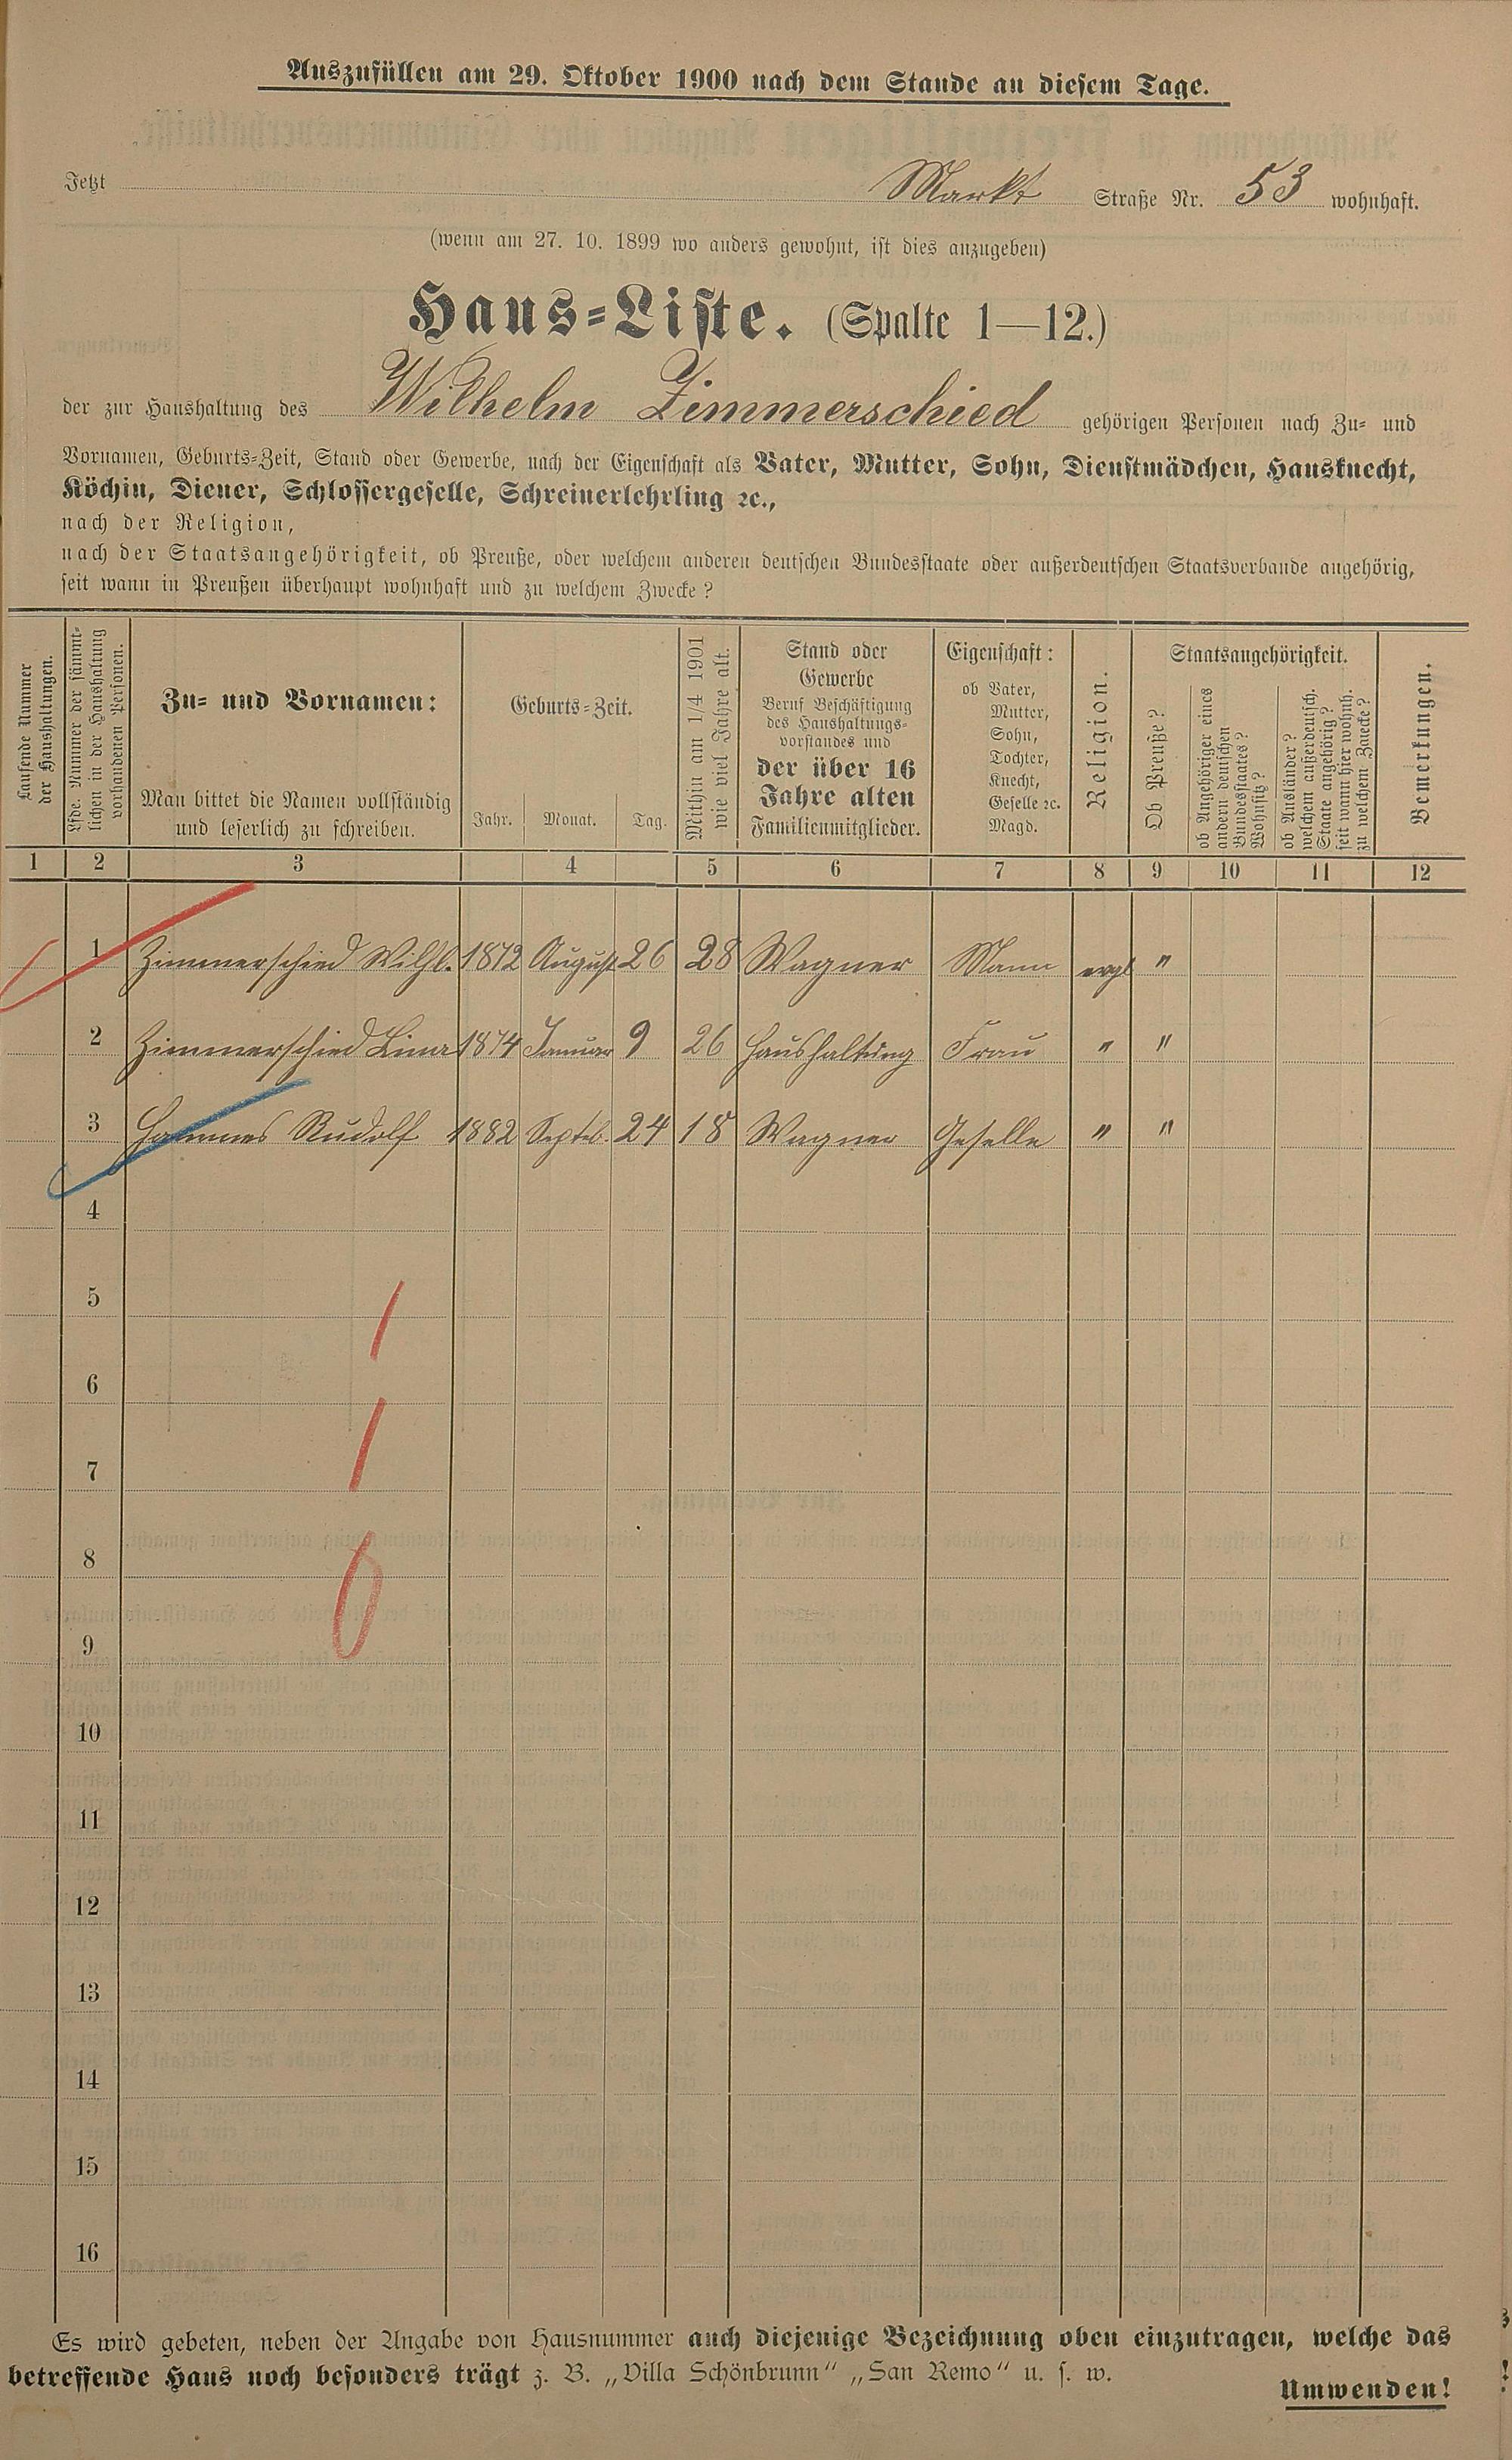 Auszufüllen am 29. Oktober 1900 nach dem Stande an diesem Tage.
Jetzt Markt Straße Nr. 53 wohnhaft.
(wenn am 27. 10. 1899 wo anders gewohnt, ist dies anzugeben)
Haus-Liste. (Spalte 1—12.)
der zur Haushaltung des Wilhelm Zimmerschied gehörigen Personen nach Zu- und
Vornamen, Geburts-Zeit, Stand oder Gewerbe, nach der Eigenschaft als Vater, Mutter, Sohn, Dienstmädchen, Hausknecht,
Köchin, Diener, Schlossergeselle, Schreinerlehrling ꝛc.,
nach der Religion,
nach der Staatsangehörigkeit, ob Preuße, oder welchem anderen deutschen Bundesstaate oder außerdeutschen Staatsverbande angehörig,
seit wann in Preußen überhaupt wohnhaft und zu welchem Zwecke?
Laufende Nummer
der Haushaltungen.
Lfde. Nummer der sämmt-
lichen in der Haushaltung
vorhandenen Personen.
Zu- und Vornamen:
Man bittet die Namen vollständig
und leserlich zu schreiben.
Geburts-Zeit.
Jahr. Monat. Tag.
Mithin am 1/4 1901
wie viel Jahre alt.
Stand oder
Gewerbe
Beruf Beschäftigung
des Haushaltungs-
vorstandes und
der über 16
Jahre alten
Familienmitglieder.
Eigenschaft:
ob Vater,
Mutter,
Sohn,
Tochter,
Knecht,
Geselle ꝛc.
Magd.
Religion.
Staatsangehörigkeit.
Ob Preuße?
ob Angehöriger eines
andern deutschen
Bundesstaates?
Wohnsitz?
ob Ausländer?
welchem außerdeutsch.
Staate angehörig?
seit wann hier wohnh.
zu welchem Zwecke?
Bemerkungen.
1 2 3 4 5 6 7 8 9 10 11 12
1 Zimmerschied Wilhl. 1872 August 26 28 Wagner Mann evgl "
2 Zimmerschied Lina 1874 Januar 9 26 Haushaltung Frau " "
3 Hammes Rudolf 1882 Septeb. 24 18 Wagner Geselle " "
4
5
6
7
8
9
10
11
12
13
14
15
16
Es wird gebeten, neben der Angabe von Hausnummer auch diejenige Bezeichnung oben einzutragen, welche das
betreffende Haus noch besonders trägt z. B. „Villa Schönbrunn“ „San Remo“ u. s. w.
Umwenden!